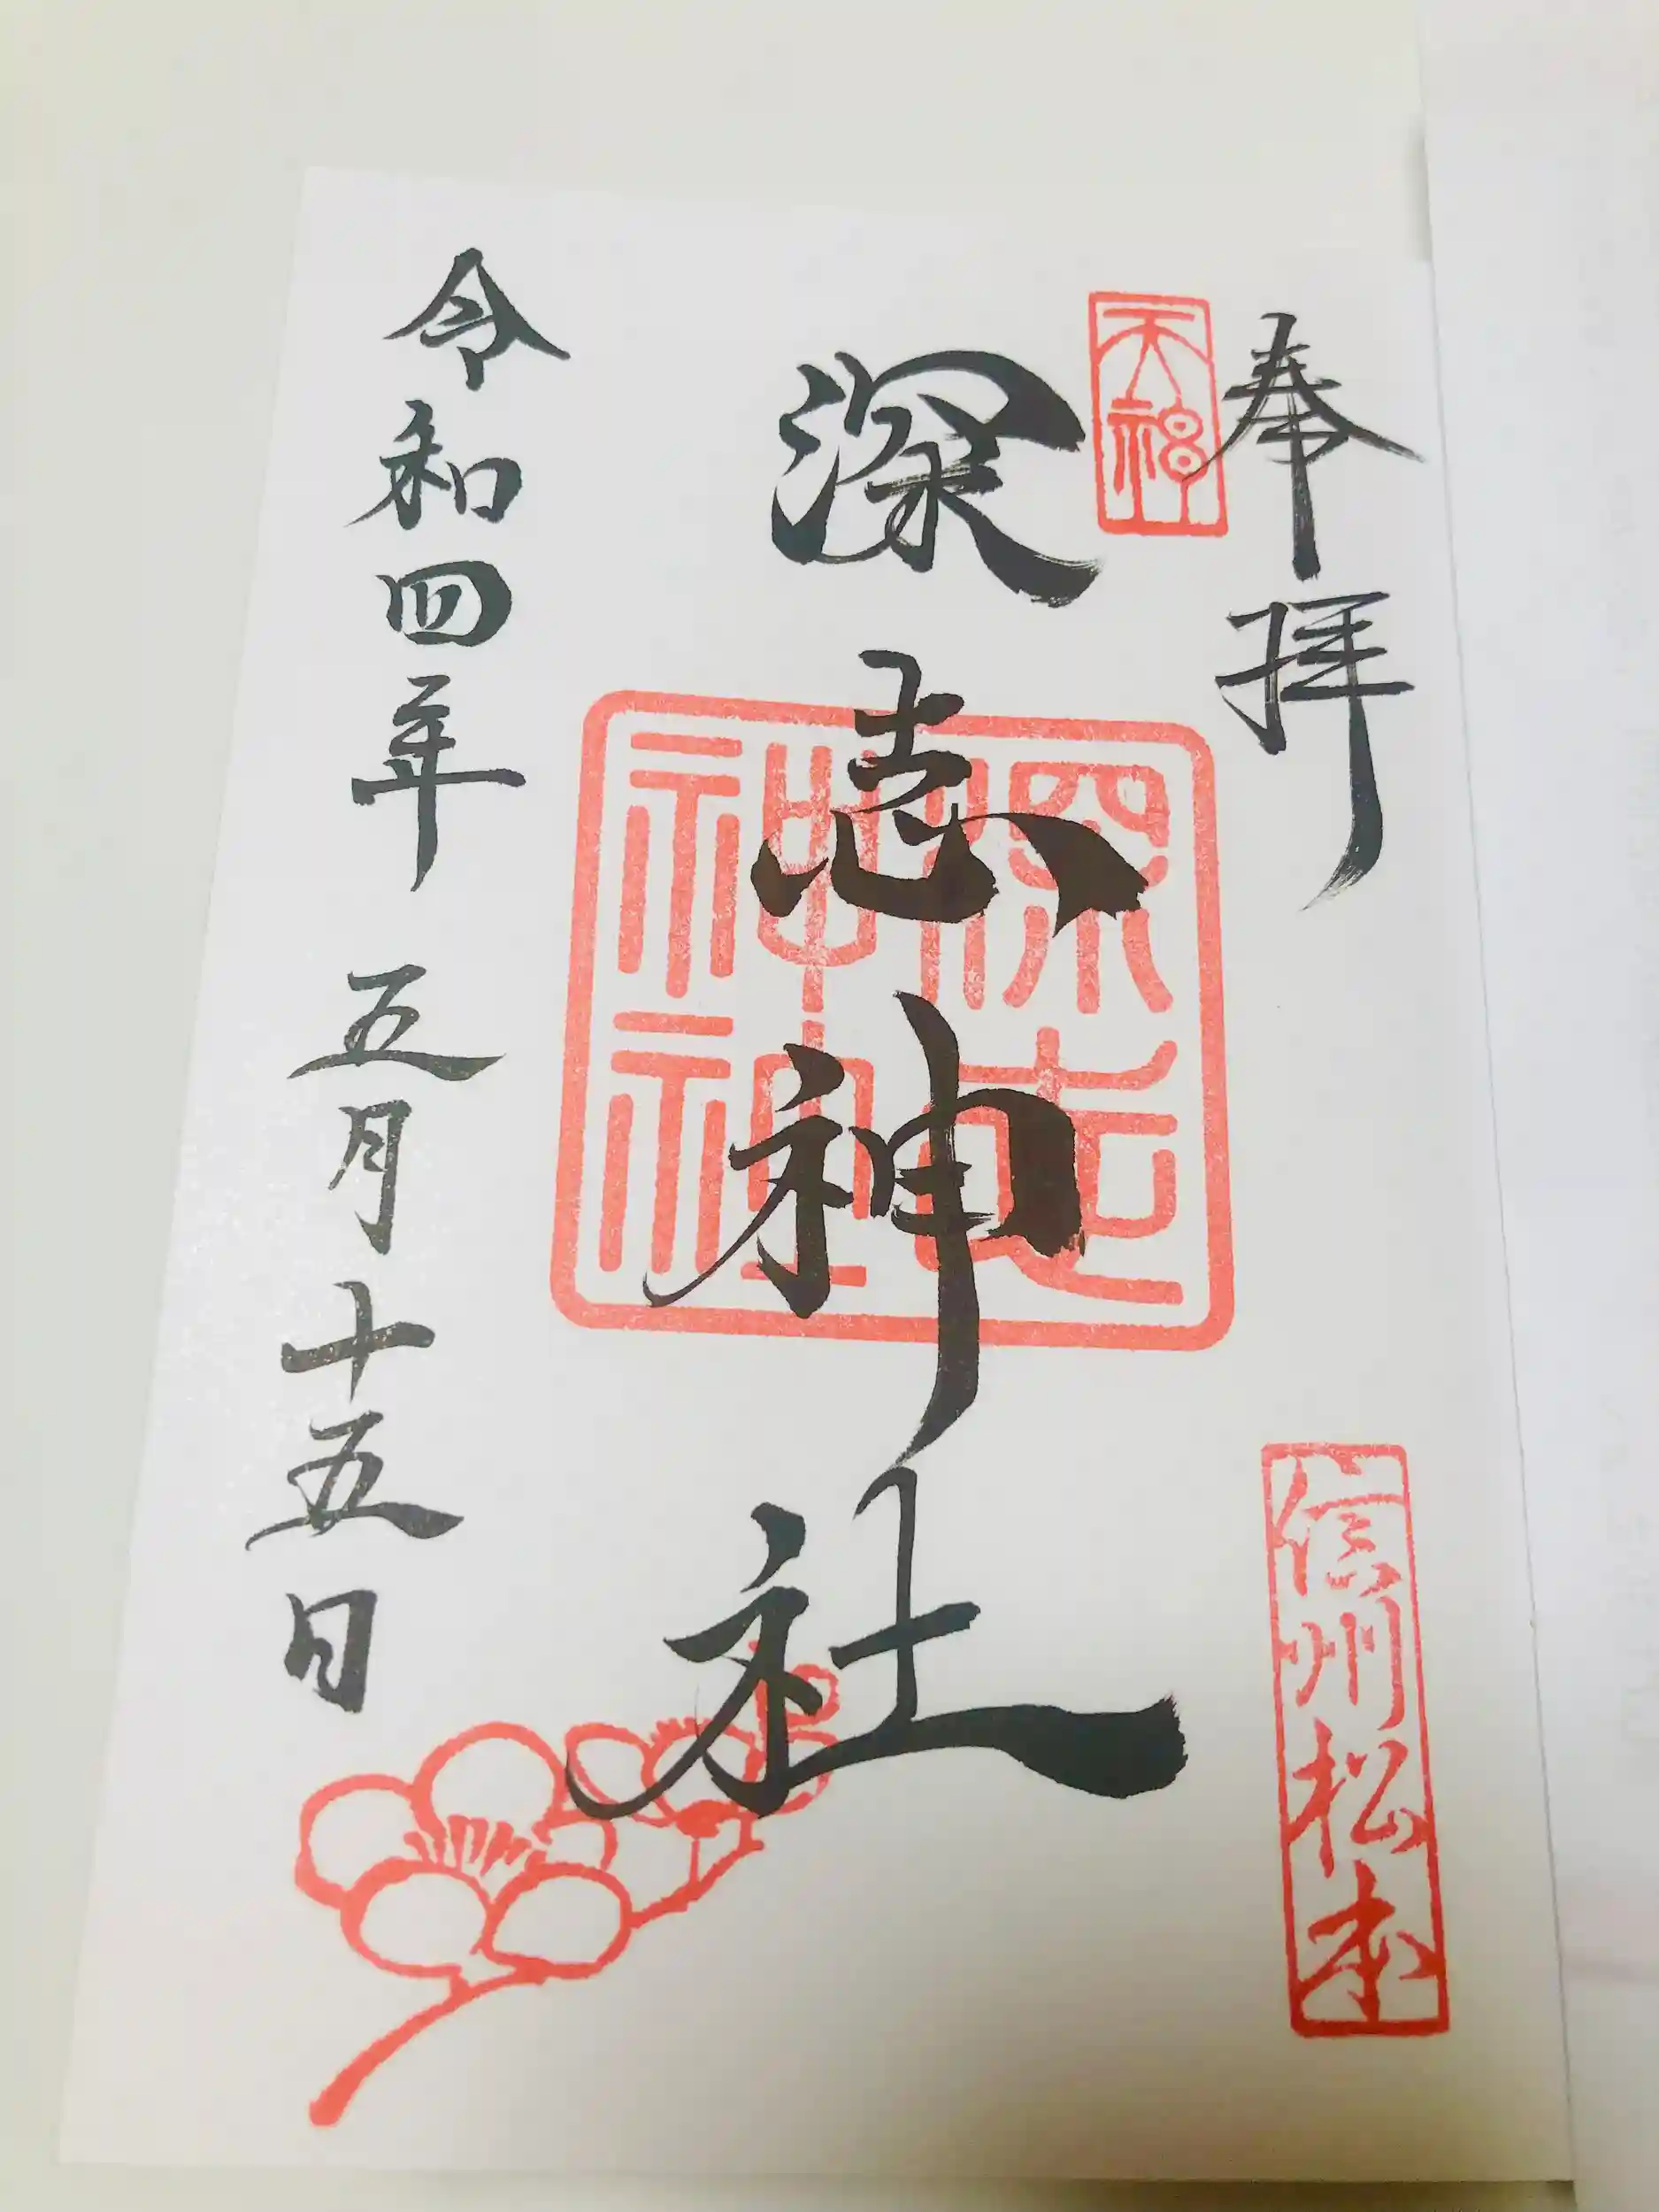 奉拝
信州松本
天神
深志神社
深志
神社
令和四年 五月十五日